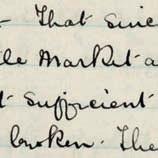 - That since
le Market a
t sufficient
broken. The